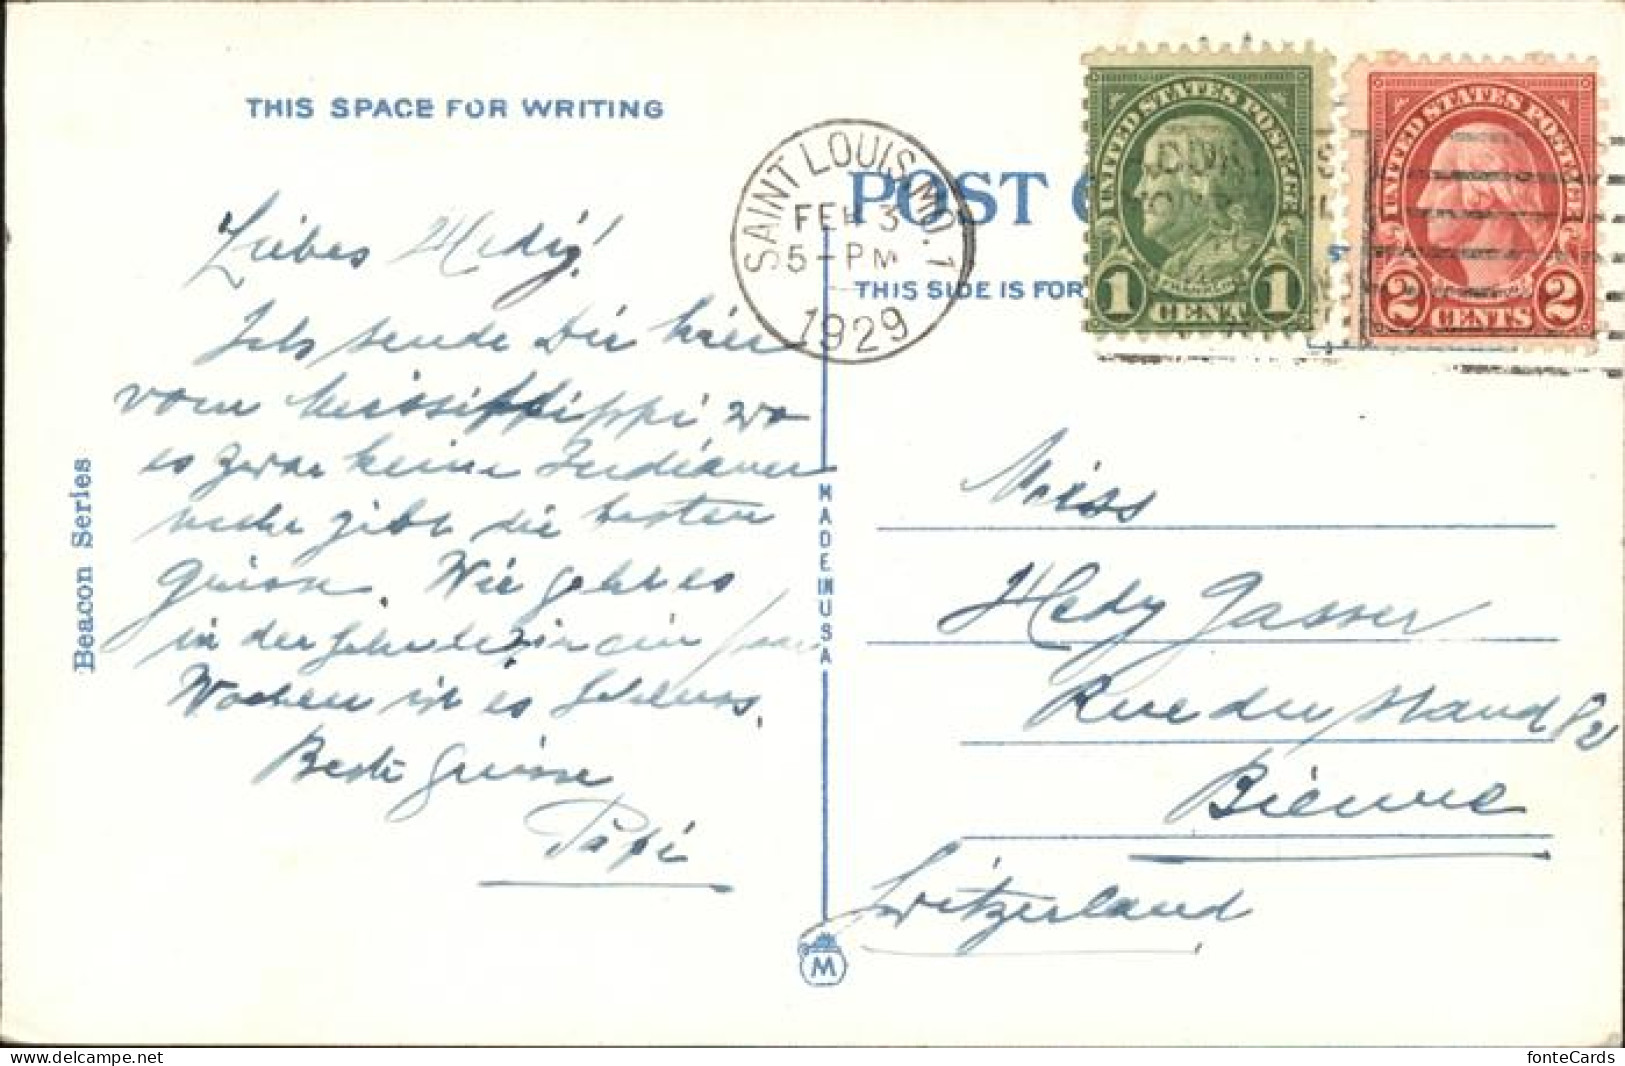 THIS SPACE FOR WRITING
Liebes Hedy!
Ich sende Dir hier
vom Mississippi wo
es zwar keine Indianer
mehr gibt die besten
Grüsse. Wie geht es
in der Schule? in ein paar
Wochen ist es Schluss.
Beste Grüsse
Papi
Beacon Series
MADE IN USA
M
SAINT LOUIS, MO. 1
FEB 3
5-PM
1929
POST C
THIS SIDE IS FOR
UNITED STATES POSTAGE
1 CENT 1
UNITED STATES POSTAGE
2 CENTS 2
Miss
Hedy Gasser
Rue du Stand 82
Bienne
Switzerland
fonteCards